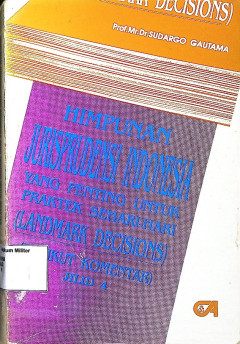 DECISIONS)
Prof.Mr.Dr.SUDARGO GAUTAMA
HIMPUNAN
JURISPRUDENSI INDONESIA
YANG PENTING UNTUK
PRAKTEK SEHARI-HARI
(LANDMARK DECISIONS)
KOMENTAR)